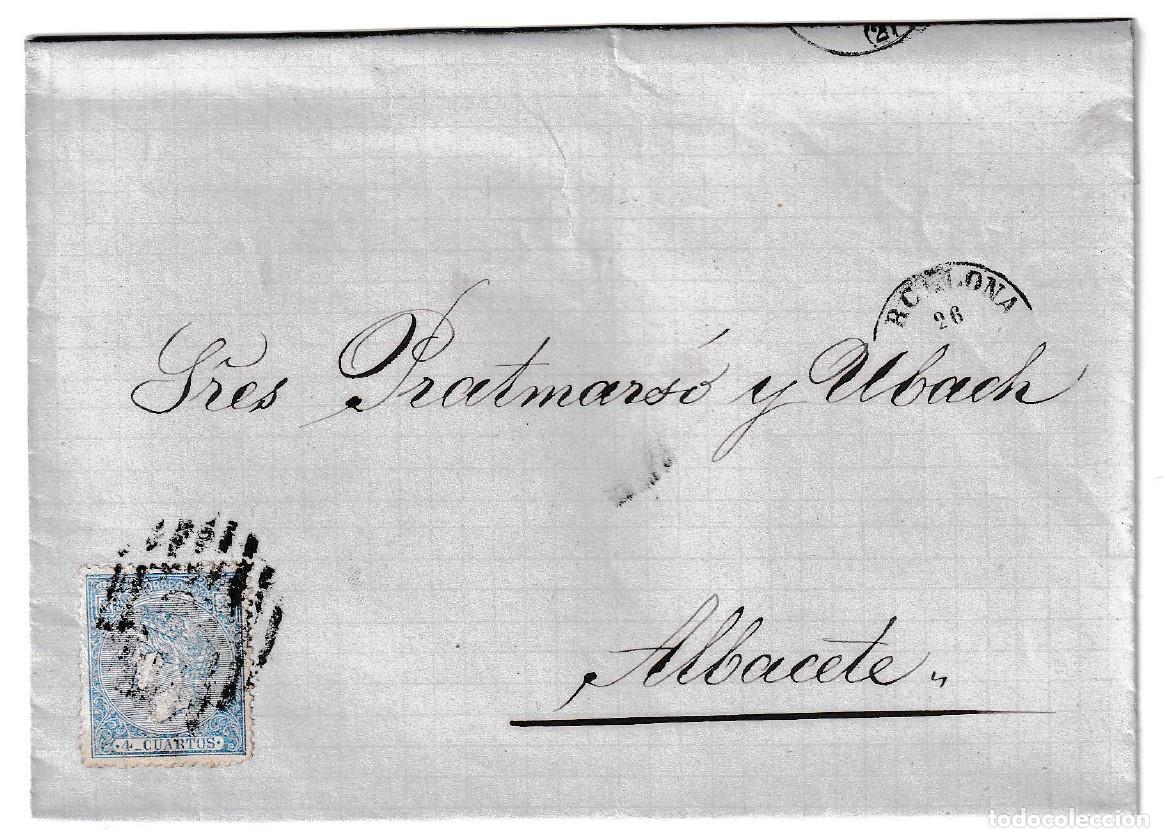 (2)
RCELONA
26
Sres Pratmarsó y Ubach
Albacete
CORREOS
4 CUARTOS
todocoleccion